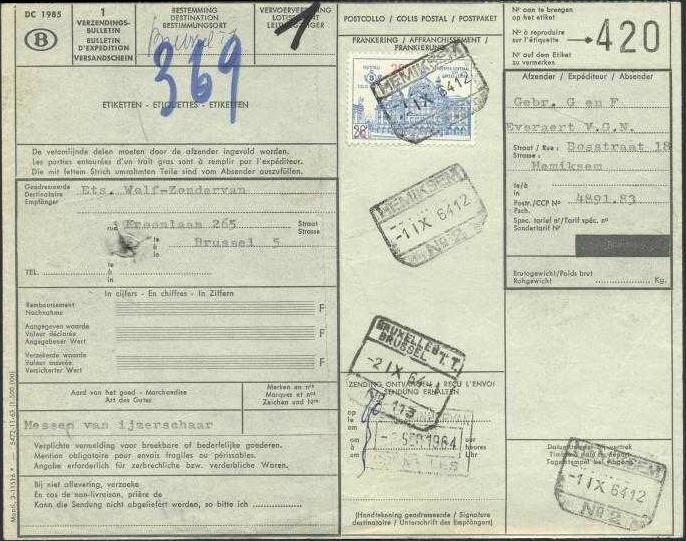 DC 1985
B
1
VERZENDINGS-
BULLETIN
BULLETIN
D'EXPEDITION
VERSANDSCHEIN
BESTEMMING
DESTINATION
BESTIMMUNGSORT
369
ETIKETTEN - ETIQUETTES - ETIKETTEN
De vetomlijnde delen moeten door de afzender ingevuld worden.
Les parties entourées d'un trait gras sont à remplir par l'expéditeur.
Die mit fettem Strich umrahmten Teile sind vom Absender auszufüllen.
Geadresseerde
Destinataire
Empfänger
Ets. Wolf-Zondervan
rue Kroonlaan 265
Straat
Strasse
te
à
in
Brussel 5
te
à
in
TEL.
In cijfers - En chiffres - In Ziffern
Remboursement
Nachnahme
F
Aangegeven waarde
Valeur déclarée
Angegebener Wert
F
Verzekerde waarde
Valeur assurée
Versicherter Wert
F
Aard van het goed - Marchandise
Art des Gutes
Merken en nrs
Marques et nos
Zeichen und Nrn
Messen van ijzerschaar
Verplichte vermelding voor breekbare of bederfelijke goederen.
Mention obligatoire pour envois fragiles ou périssables.
Angabe erforderlich für zerbrechliche bzw. verderbliche Waren.
Bij niet aflevering, verzoeke
En cas de non-livraison, prière de
Kann die Sendung nicht abgeliefert werden, so bitte ich
POSTCOLLO / COLIS POSTAL / POSTPAKET
FRANKERING / AFFRANCHISSEMENT /
FRANKIERUNG
HEMIKSEM
-1 IX 64 12
HEMIKSEM
-1 IX 64 12
No 2
BRUXELLES T.T.
BRUSSEL
-2 IX 64
No 113
ZENDING ONTVANGEN / REÇU L'ENVOI
SENDUNG ERHALTEN
op
le
am
om
à
um
uur
heures
Uhr
SEP 1964
(Handtekening geadresseerde / Signature
destinataire / Unterschrift des Empfängers)
No aan te brengen
op het etiket
No à reproduire
sur l'étiquette
No auf dem Etikett
zu vermerken
420
Afzender / Expéditeur / Absender
Gebr. G en F
Everaert V.G.N.
Straat / Rue :
Strasse :
Bosstraat 18
Hemiksem
te/à
in
Postr./CCP No
Psch.
4891.83
Spec. tarief no/Tarif spéc. no
Sondertarif No
Brutogewicht/Poids brut
Rohgewicht
Kg.
HEMIKSEM
-1 IX 64 12
No 2